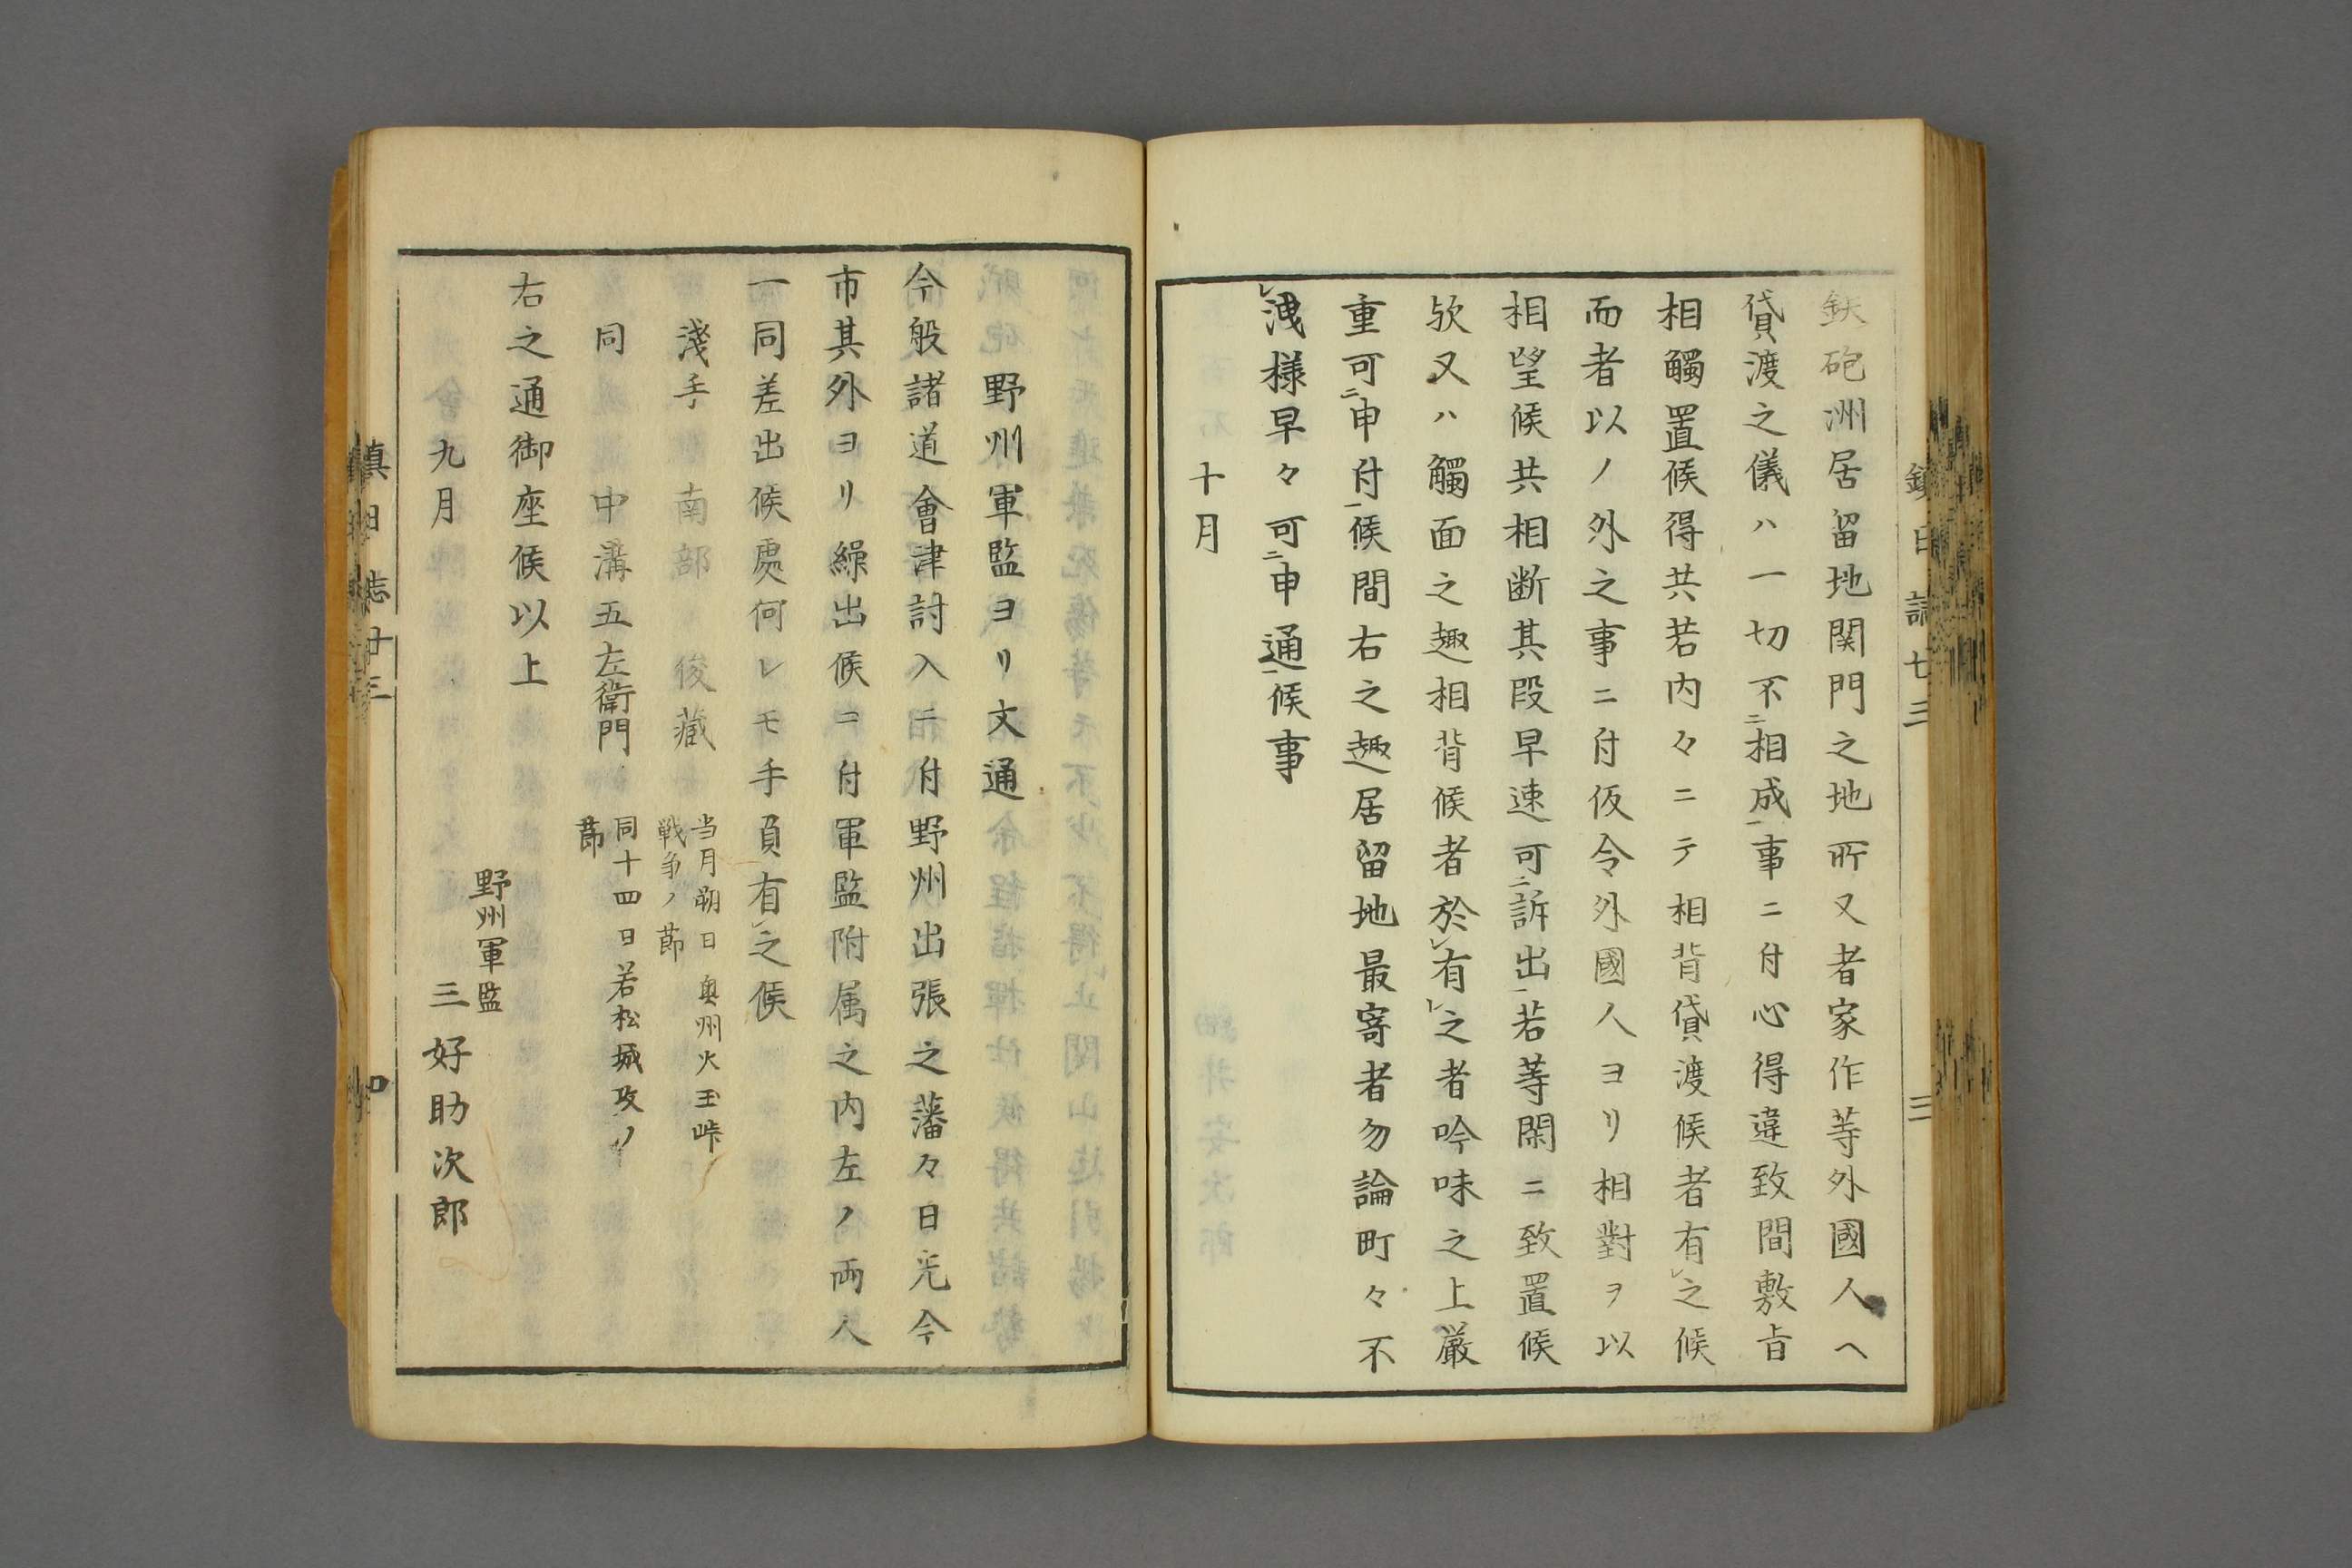 鉄砲洲居留地関門之地所又者家作等外國人ヘ
貸渡之儀ハ一切不二相成一事ニ付心得違致間敷旨
相觸置候得共若内々ニテ相背貸渡候者有レ之候
而者以ノ外之事ニ付仮令外國人ヨリ相對ヲ以
相望候共相断其段早速可二訴出一若等閑ニ致置候
欤又ハ觸面之趣相背候者於レ有レ之者吟味之上厳
重可二申付一候間右之趣居留地最寄者勿論町々不
レ洩様早々可二申通一候事
十月
鎮日誌廿三
三
野州軍監ヨリ文通
今般諸道會津討入ニ付野州出張之藩々日光今
市其外ヨリ繰出候ニ付軍監附属之内左ノ両人
一同差出候處何レモ手負有レ之候
淺手 南部 俊藏 当月朔日奥州火玉峠
戦争ノ節
同 中溝五左衛門 同十四日若松城攻ノ
節
右之通御座候以上
野州軍監
九月 三好助次郎
鎮日誌廿三
四